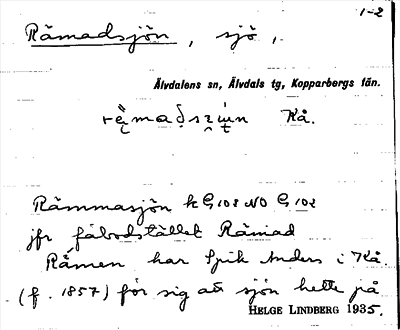 1-2
Råmadsjön, sjö,
Älvdalens sn, Älvdals tg, Kopparbergs län.
Kå.
Råmmasjön k G 102 NO G 102
jfr fäbodstället Råmad
Råmen har Spik Anders i Kå.
(f. 1857) för sig att sjön hette på
HELGE LINDBERG 1935.